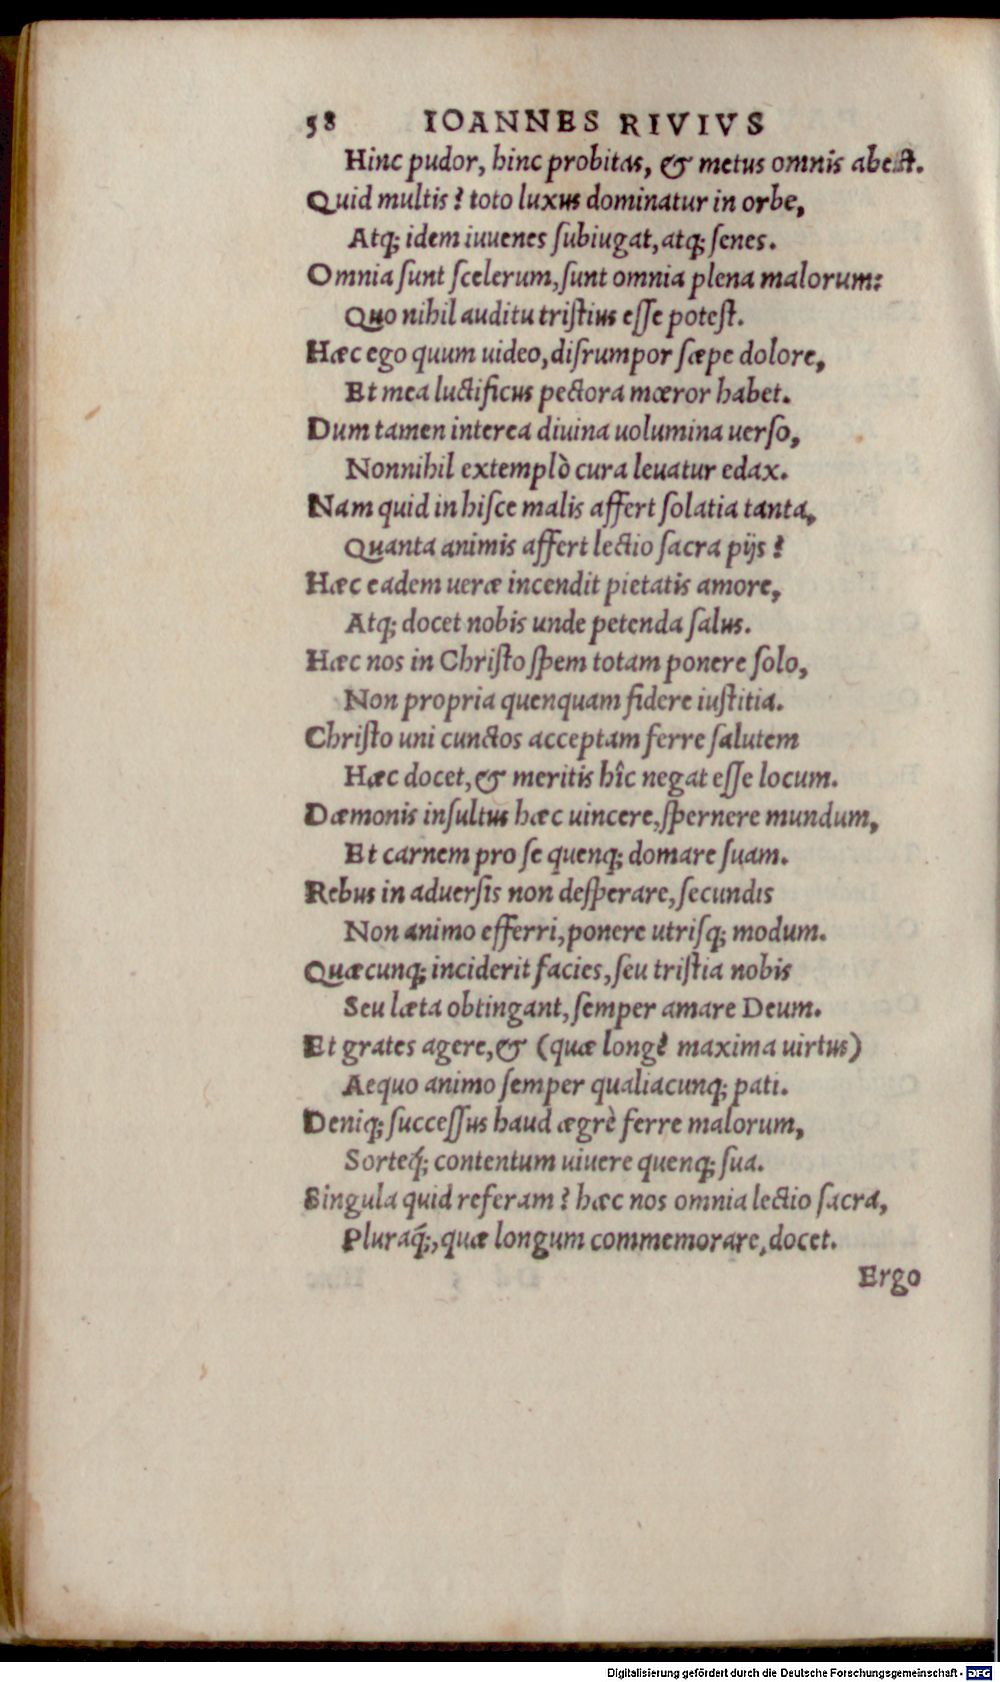 58 IOANNES RIVIVS
Hinc pudor, hinc probitas, & metus omnis abest.
Quid multis? toto luxus dominatur in orbe,
Atq; idem iuuenes ſubiugat, atq; ſenes.
Omnia ſunt ſcelerum, ſunt omnia plena malorum:
Quo nihil auditu triſtius eſſe poteſt.
Hæc ego quum uideo, diſrumpor ſæpe dolore,
Et mea luctificus pectora mœror habet.
Dum tamen interea diuina uolumina uerſo,
Nonnihil extemplò cura leuatur edax.
Nam quid in hiſce malis affert ſolatia tanta,
Quanta animis affert lectio ſacra pijs?
Hæc eadem ueræ incendit pietatis amore,
Atq; docet nobis unde petenda ſalus.
Hæc nos in Chriſto ſpem totam ponere ſolo,
Non propria quenquam fidere iuſtitia.
Chriſto uni cunctos acceptam ferre ſalutem
Hæc docet, & meritis hîc negat eſſe locum.
Dæmonis inſultus hæc uincere, ſpernere mundum,
Et carnem pro ſe quenq; domare ſuam.
Rebus in aduerſis non deſperare, ſecundis
Non animo efferri, ponere utriſq; modum.
Quæcunq; inciderit facies, ſeu triſtia nobis
Seu læta obtingant, ſemper amare Deum.
Et grates agere, & (quæ longè maxima uirtus)
Aequo animo ſemper qualiacunq; pati.
Deniq; ſucceſſus haud ægrè ferre malorum,
Sorteq́; contentum uiuere quenq; ſua.
Singula quid referam? hæc nos omnia lectio ſacra,
Pluraq́;, quæ longum commemorare, docet.
Ergo
Digitalisierung gefördert durch die Deutsche Forschungsgemeinschaft - DFG